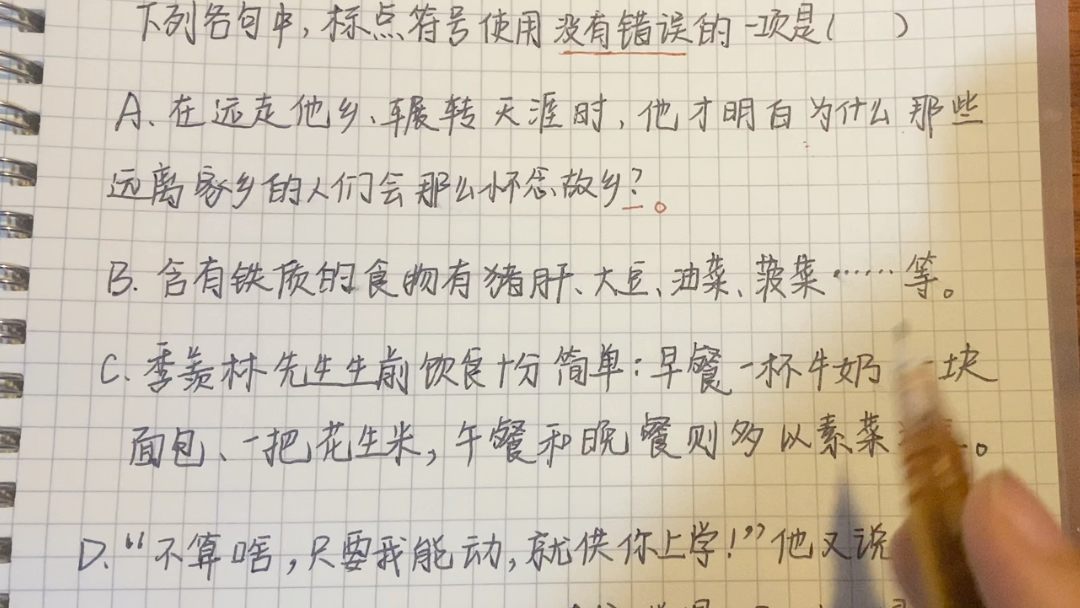 下列各句中,标点符号使用没有错误的一项是( )
A.在远走他乡、辗转天涯时,他才明白为什么那些
远离家乡的人们会那么怀念故乡?。
B.含有铁质的食物有猪肝、大豆、油菜、菠菜……等。
C.季羡林先生生前饮食十分简单:早餐一杯牛奶 一块
面包、一把花生米,午餐和晚餐则多以素菜 。
D.“不算啥,只要我能动,就供你上学!”他又说